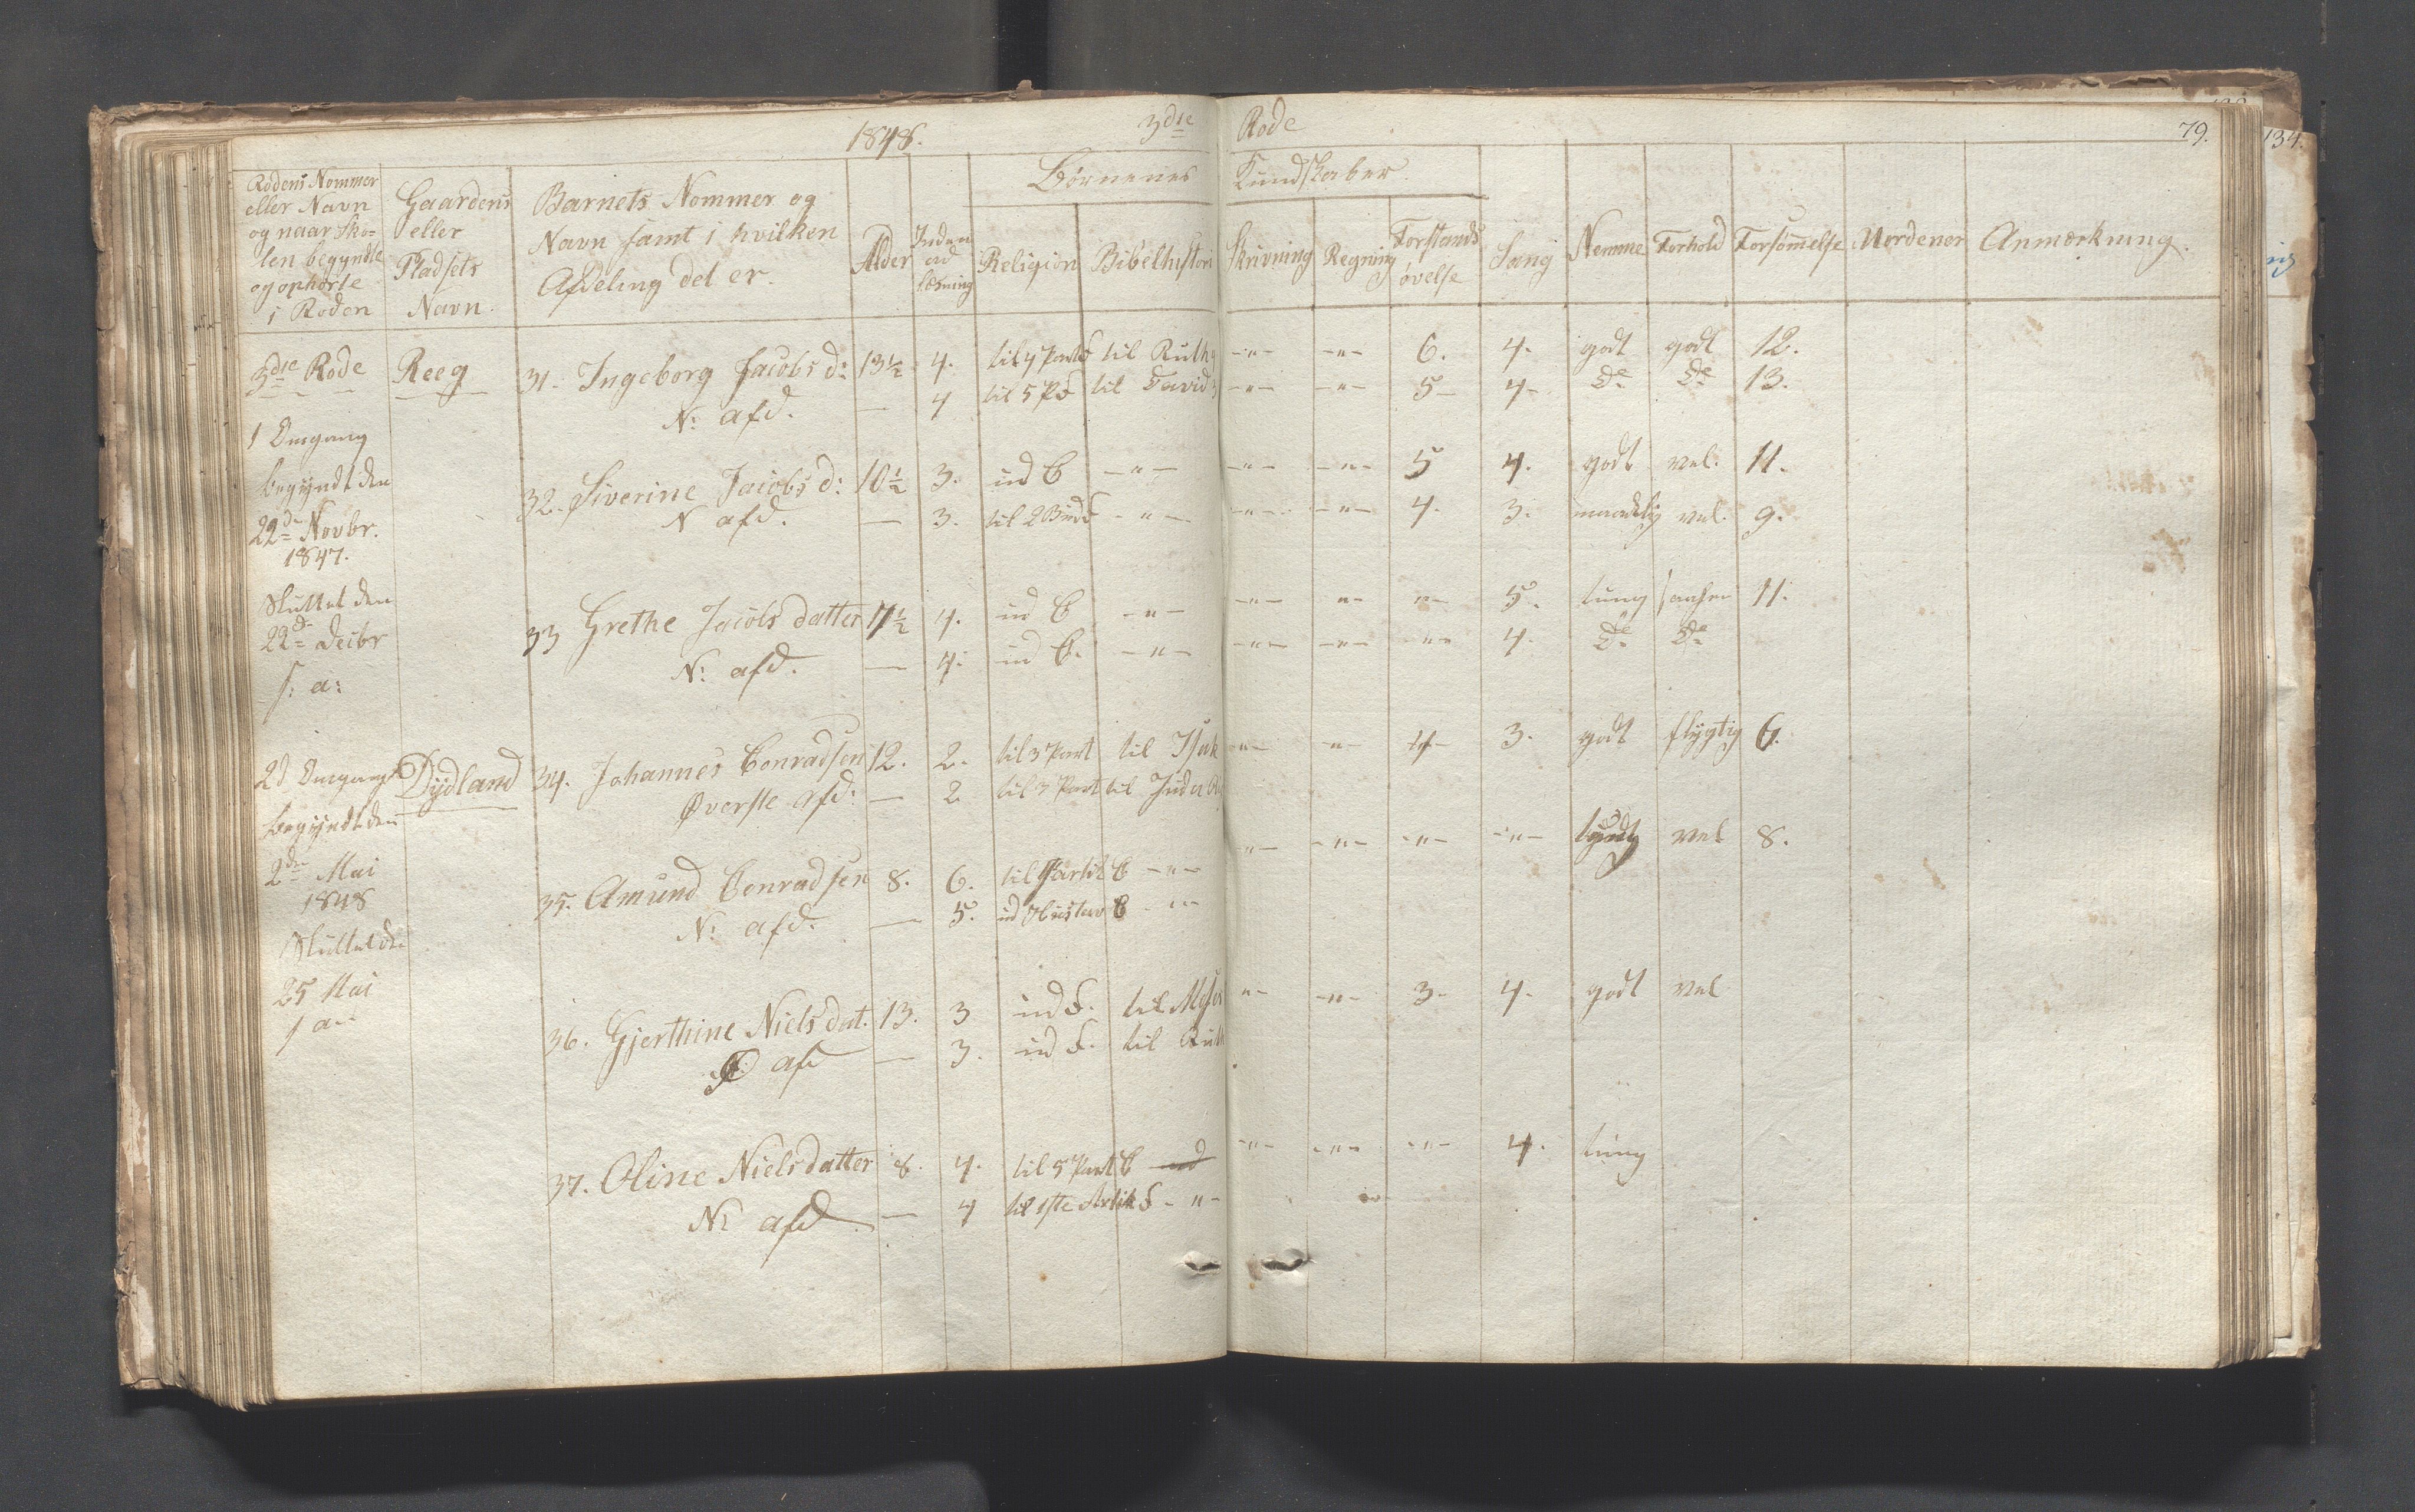 1848. 3die Rode 79.
134.
Rodens Nommer eller Navn og naar Sko=len begyndte og ophørte i Roden
Gaardens eller Pladsets Navn.
Barnets Nommer og Navn samt i hvilken Afdeling det er.
Alder
Børnenes Kundskaber.
Inden ad læsning
Religion
Bibelhistori
Skrivning
Regning
Forstands øvelse
Sang
Nemme
Forhold
Forsømmelse
Anmærkning.
3die Rode Reeg 31. Ingeborg Jacobs d: 13½ 4. til 4 Part til Ruth -"- -"- 6. 4. godt godt 12.
N: afd. — 4 til 5 til David -"- -"- 5- 4- Do Do 13.
1 Omgang
begyndt den 32. Siverine Jacobs d: 10½ 3. ud -"- -"- -"- 5 4. godt vel. 11.
22de Novbr. N afd. — 3. til 2 -"- -"- -"- 4. 3. maadelig vel. 9.
1847.
Sluttet den 33 Grethe Jacobs datter 11½ 4. ud -"- -"- "- "- 5. tung 11.
22de Decbr N: afd. — 4. ud -"- -"- -"- -"- 4. Do Do
s: a:
2d Omgang Dydland 34. Johannes Conradsen 12. 2. til 3 Part til Isak "- "- 4- 3. godt flygtig 6.
begyndt den Øverste afd: — 2 til 3 Part til
2den Mai 35. Amund Conradsen 8. 6. til -"- "- -"- -"- -"- vel 8.
1848 N: afd. — 5. ud -"-
Sluttet den
25 Mai 36. Gjerthine Niels dat. 13. 3 ud til "- -"- 3- 4- godt vel
s a: Ø afd — 3. ud til Ruth
37. Oline Nielsdatter 8. 4. til 5 Part -"- -"- -"- 4. tung
N: afd — 4 til 1ste -"-